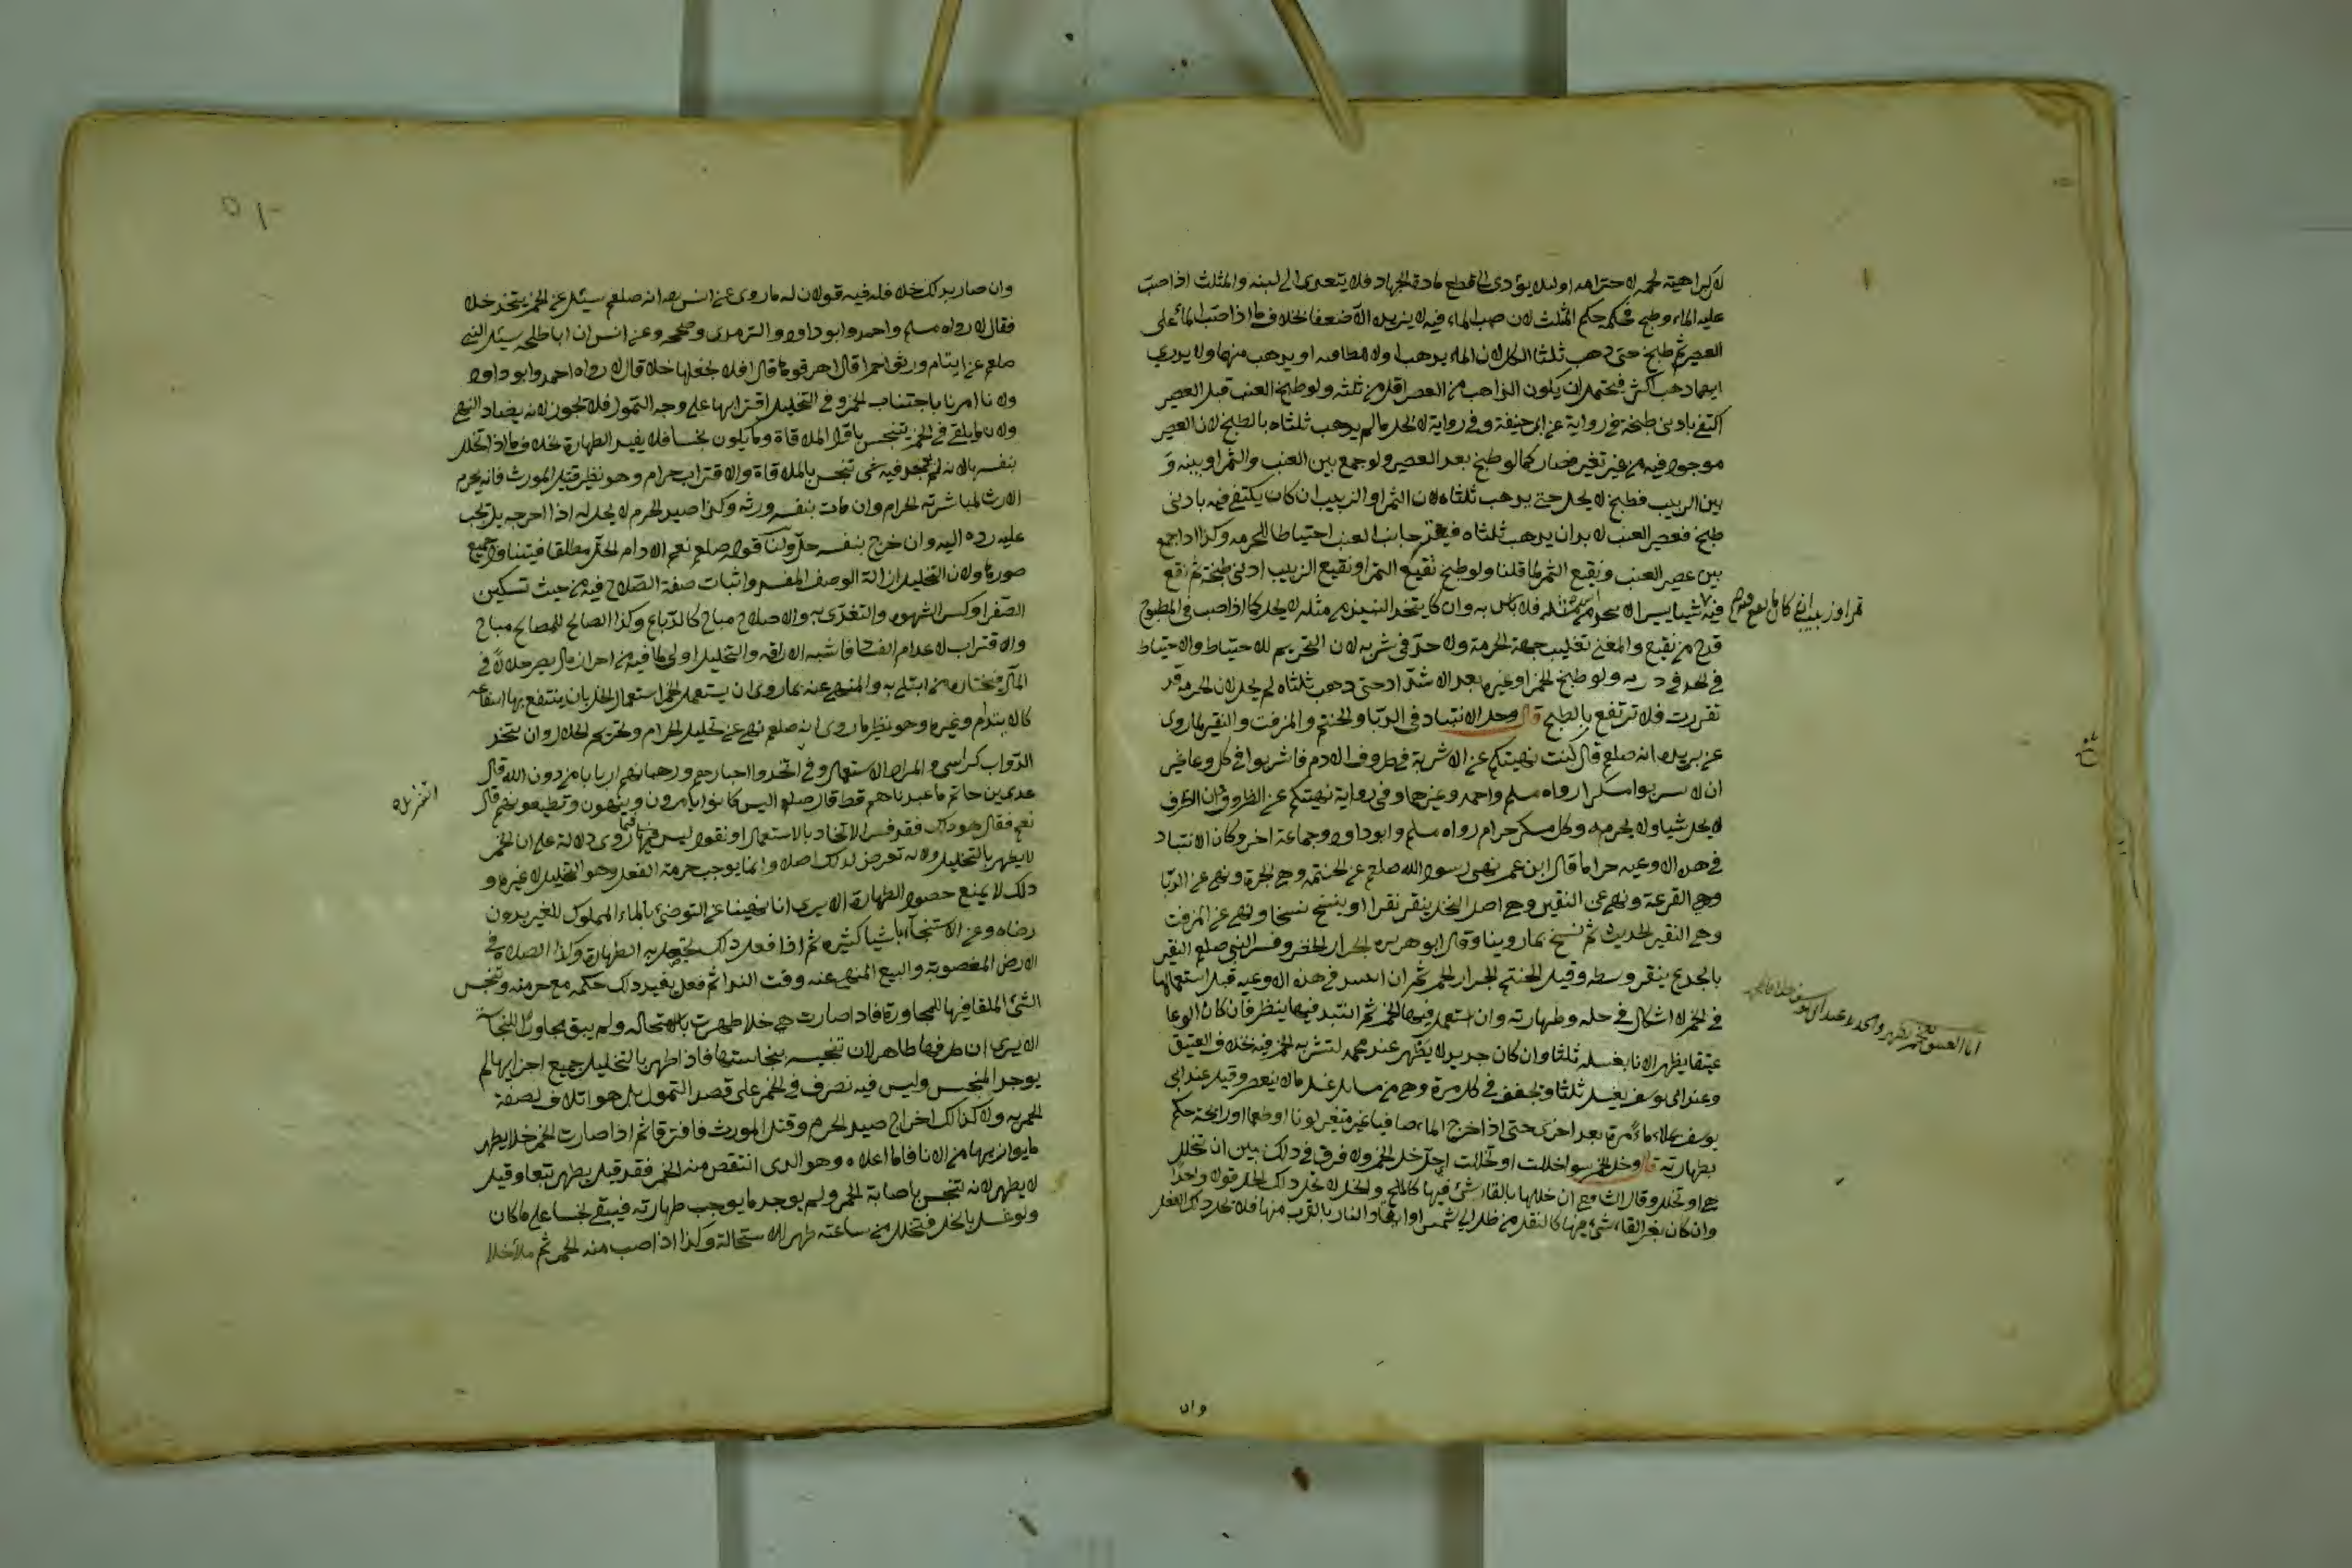 لكراهية لحمه لاحترامه او لئلا يؤدي الى قطع مادة الجهاد فلا يتعدى الى لبنه والمثلث اذا صب
عليه الماء وطبخ فحكمه حكم المثلث لان صب الماء فيه لا يزيده الا ضعفا بخلاف ما اذا صب الماء على
العصير ثم طبخ حتى ذهب ثلثا الكل لان الماء يذهب اولا لطافته او يذهب منهما ولا يدري
ايهما ذهب اكثر فيحتمل ان يكون الذاهب من العصير اقل من ثلثه ولو طبخ العنب قبل العصير
اكتفى بادنى طبخة في رواية عن ابي حنيفة وفي رواية لا يحل ما لم يذهب ثلثاه بالطبخ لان العصير
موجود فيه من غير تغير فصار كما لو طبخ بعد العصير ولو جمع بين العنب والتمر او بينه و
بين الزبيب فطبخ لا يحل حتى يذهب ثلثاه لان التمر او الزبيب ان كان يكتفى فيه بادنى
طبخ فعصير العنب لا بد ان يذهب ثلثاه فيعتبر جانب العنب احتياطا للحرمة وكذا اذا جمع
بين عصير العنب ونقيع التمر لما قلنا ولو طبخ نقيع التمر او نقيع الزبيب ادنى طبخة ثم نقع
فيه شيئا يسيرا فلا باس به وان كان يتخذ النبيذ من مثله لا يحل كما اذا صب في المطبوخ
قدح من نقيع والمعنى تغليب جهة الحرمة ولا حد في شربه لان التحريم للاحتياط والاحتياط
في الحد في درئه ولو طبخ الخمر او غيره بعد الاشتداد حتى ذهب ثلثاه لم يحل لان الحرمة قد
تقررت فلا ترتفع بالطبخ قال وحل الانتباذ في الدبا والحنتم والمزفت والنقير لما روى
عن بريدة انه صلعم قال كنت نهيتكم عن الاشربة في ظروف الادم فاشربوا في كل وعاء غير
ان لا تشربوا مسكرا رواه مسلم واحمد وغيرهما وفي رواية نهيتكم عن الظروف وان الظرف
لا يحل شيئا ولا يحرمه وكل مسكر حرام رواه مسلم وابو داود وجماعة اخر وكان الانتباذ
في هذه الاوعية حراما قال ابن عمر نهى رسول الله صلعم عن الحنتمة وهي الجرة ونهى عن الدبا
وهي القرعة ونهى عن النقير وهي اصل النخل ينقر نقرا او ينسج نسجا ونهى عن المزفت
وهي النقير الحديث ثم نسخ بما روينا وقال ابو هريرة الجرار الخضر وفسر النبي صلعم النقير
بالجذع ينقر وسطه وقيل الحنتم الجرار الحمر ثم ان انتبذ في هذه الاوعية قبل استعمالها
في الخمر لا اشكال في حله وطهارته وان استعمل فيها الخمر ثم انتبذ فيها ينظر فان كان الوعا
عتيقا يطهر الانا بغسله ثلثا وان كان جديدا لا يطهر عند محمد لتشربه الخمر فيه بخلاف العتيق
وعند ابي يوسف يغسل ثلثا ويجفف في كل مرة وهي من مسايل غسل ما لا ينعصر وقيل عند ابي
يوسف يملاء ماء مرة بعد اخرى حتى اذا خرج الماء صافيا غير متغير لونا او طعما او رائحة حكم
بطهارته قال وخل الخمر سوا خللت او تخللت اي حل خل الخمر ولا فرق في ذلك بين ان تخلل
هي او تخلل وقال الشافعي ان خللها بالقاء شئ فيها كالملح والخل لا يحل ذلك الخل قولا واحدا
وان كان بغير القاء شئ فيها كالنقل من ظل الى شمس او ايقاد النار بالقرب منها فلا تحل ذلك الخل
وان
وان صار بذلك خلا فله فيه قولان له ما روى عن انس انه صلعم سئل عن الخمر يتخذ خلا
فقال لا رواه مسلم واحمد وابو داود والترمذي وصححه وعن انس ان ابا طلحة سئل النبي
صلعم عن ايتام ورثوا خمرا قال اهرقوها قال افلا نجعلها خلا قال لا رواه احمد وابو داود
ولانا امرنا باجتناب الخمر وفي التخليل اقترابها على وجه التمول فلا تجوز لانه يضاد النهي
ولان ما يلقى في الخمر يتنجس باول الملاقاة وما يكون نجسا فلا يفيد الطهارة بخلاف ما اذا تخلل
بنفسها لانه لم يوجد فيه شئ تنجس بالملاقاة والاقتراب حرام وهو نظير قتل المورث فانه يحرم
الارث لمباشرته الحرام وان مات بنفسه ورثه وكذا صيد الحرم لا يحل له اذا اخرجه بل يجب
عليه رده اليه وان خرج بنفسه حل ولنا قوله صلعم نعم الادام الخل مطلقا فيتناول جميع
صورها ولان التخليل ازالة الوصف المفسد واثبات صفة الصلاح فيه من حيث تسكين
الصفرا وكسر الشهوة والتغذي به والاصلاح مباح كالدباغ وكذا الصالح للمصالح مباح
والاقتراب لاعدام الفساد فاشبه الاراقة والتخليل اولى لما فيه من احراز مال يصير حلالا في
المآل فيختاره من ابتلي به والمنهي عنه بما روى ان يستعمل الخمر استعمال الخل بان ينتفع بها انتفاعه
كالايتدام وغيره وهو نظير ما روى انه صلعم نهى عن تحليل الحرام وتحريم الحلال وان يتخذ
الدواب كراسي والمراد الاستعمال وفي اتخذوا احبارهم ورهبانهم اربابا من دون الله قال
عدي بن حاتم ما عبدناهم قط قال صلعم اليس كانوا يامرون وينهون وتطيعونهم قال
نعم فقال هو ذاك فقد فسر الاتخاذ بالاستعمال او نقول ليس فيما روى دلالة على ان الخمر
لا يطهر بالتخليل ولانه تعرض لذلك اصلا وانما يوجب حرمة الفعل وهو التخليل لا غيره و
ذلك لا يمنع حصول الطهارة الا يرى انا نهينا عن التوضئ بالماء المملوك للغير بدون
رضاه وعن الاستنجاء باشيا كثيرة ثم اذا فعل ذلك يحصل به الطهارة وكذا الصلاة في
الارض المغصوبة والبيع المنهي عنه وقت الندا ثم فعل يفيد ذلك حكمه مع حرمته وتنجس
الشئ الملقا فيها للمجاورة فاذا صارت هي خلا طهرت بالاستحالة ولم يبق مجاورا للنجاسة
الا يرى ان ظرفها طاهر لان تنجسه بنجاستها فاذا طهر بالتخليل جميع اجزايها لم
يوجد المنجس وليس فيه تصرف في الخمر على قصد التمول بل هو اتلاف لصفة
الخمرية ولا كذلك اخراج صيد الحرم وقتل المورث فافترقا ثم اذا صارت الخمر خلا يطهر
ما يوازيها من الانا فاما اعلاه وهو الذي انتقص منه الخمر فقد قيل يطهر تبعا وقيل
لا يطهر لانه تنجس باصابة الخمر ولم يوجد ما يوجب طهارته فيبقى نجسا على ما كان
ولو غسل بالخل فتخلل من ساعته طهر للاستحالة وكذا اذا صب منه الخمر ثم ملأ خلا